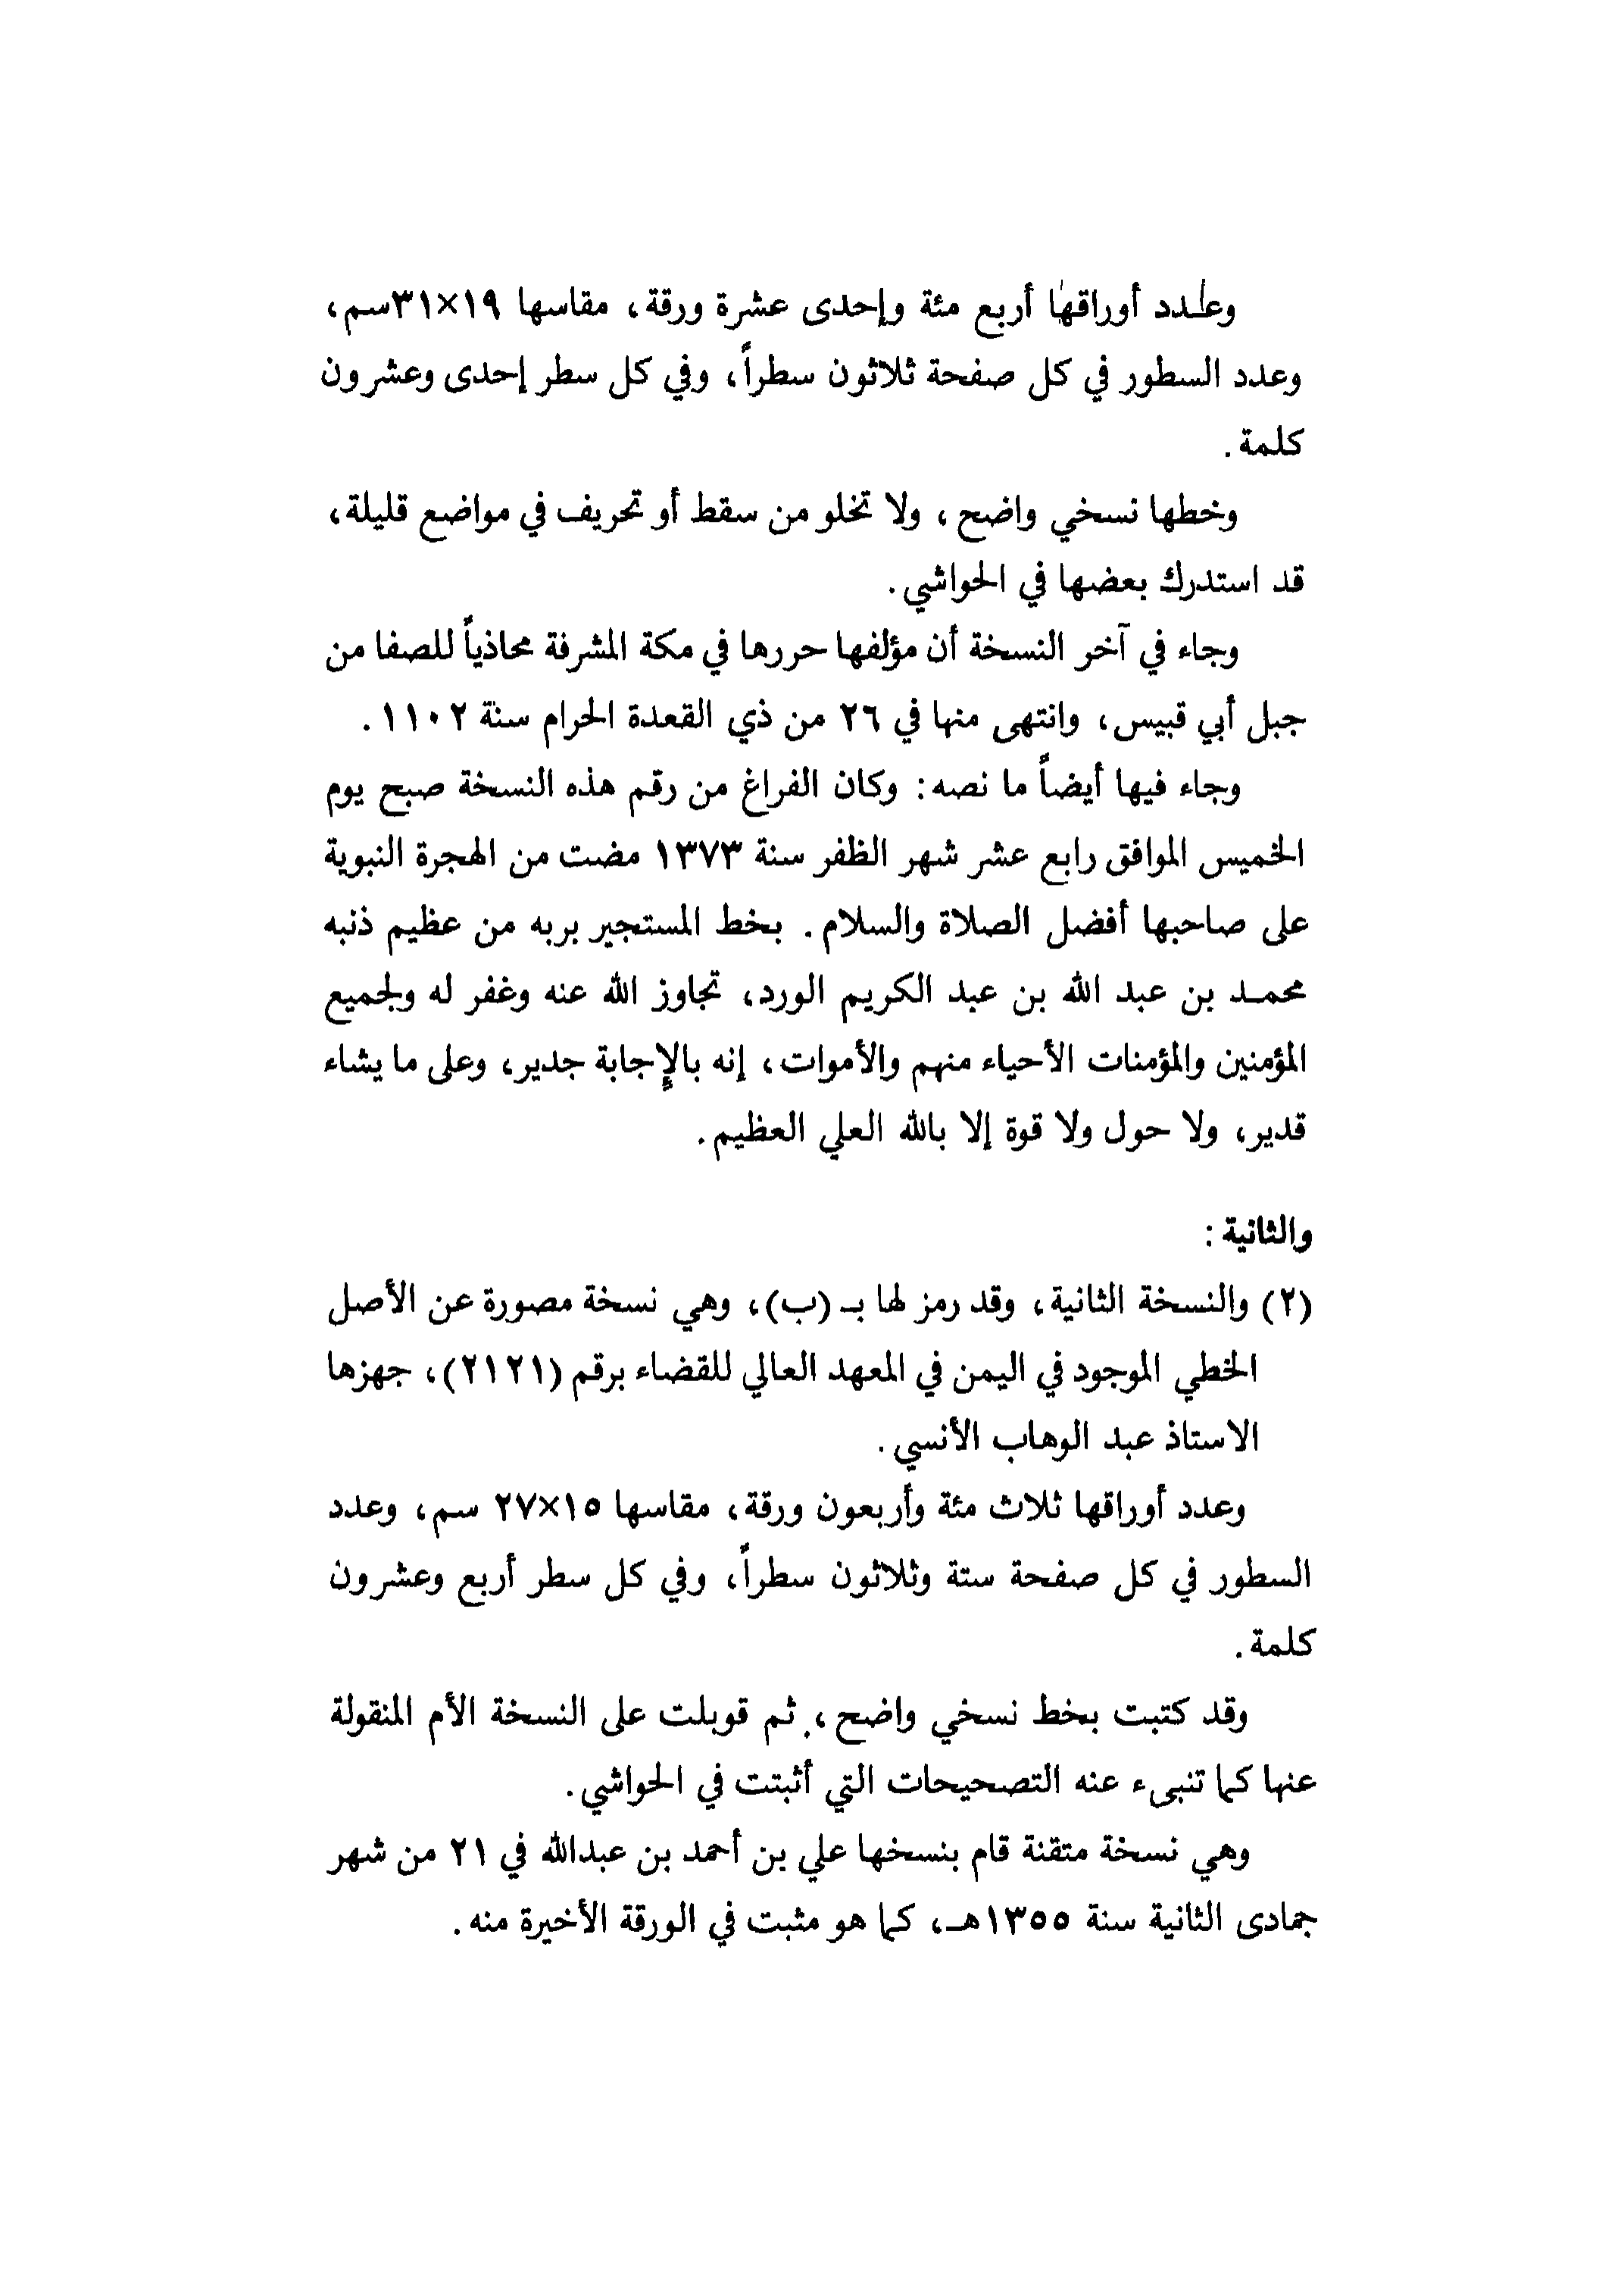 وعدد أوراقها أربع مئة وإحدى عشرة ورقة، مقاسها ١٩×٣١سم،
وعدد السطور في كل صفحة ثلاثون سطراً، وفي كل سطر إحدى وعشرون
كلمة.
وخطها نسخي واضح، ولا تخلو من سقط أو تحريف في مواضع قليلة،
قد استدرك بعضها في الحواشي.
وجاء في آخر النسخة أن مؤلفها حررها في مكة المشرفة محاذياً للصفا من
جبل أبي قبيس، وانتهى منها في ٢٦ من ذي القعدة الحرام سنة ١١٠٢.
وجاء فيها أيضاً ما نصه: وكان الفراغ من رقم هذه النسخة صبح يوم
الخميس الموافق رابع عشر شهر الظفر سنة ١٣٧٣ مضت من الهجرة النبوية
على صاحبها أفضل الصلاة والسلام. بخط المستجير بربه من عظيم ذنبه
محمد بن عبد الله بن عبد الكريم الورد، تجاوز الله عنه وغفر له ولجميع
المؤمنين والمؤمنات الأحياء منهم والأموات، إنه بالإجابة جدير، وعلى ما يشاء
قدير، ولا حول ولا قوة إلا بالله العلي العظيم.
والثانية:
(٢) والنسخة الثانية، وقد رمز لها بـ (ب)، وهي نسخة مصورة عن الأصل
الخطي الموجود في اليمن في المعهد العالي للقضاء برقم (٢١٢١)، جهزها
الاستاذ عبد الوهاب الأنسي.
وعدد أوراقها ثلاث مئة وأربعون ورقة، مقاسها ١٥×٢٧ سم، وعدد
السطور في كل صفحة ستة وثلاثون سطراً، وفي كل سطر أربع وعشرون
كلمة.
وقد كتبت بخط نسخي واضح، ثم قوبلت على النسخة الأم المنقولة
عنها كما تنبىء عنه التصحيحات التي أثبتت في الحواشي.
وهي نسخة متقنة قام بنسخها علي بن أحمد بن عبدالله في ٢١ من شهر
جمادى الثانية سنة ١٣٥٥هـ، كما هو مثبت في الورقة الأخيرة منه.